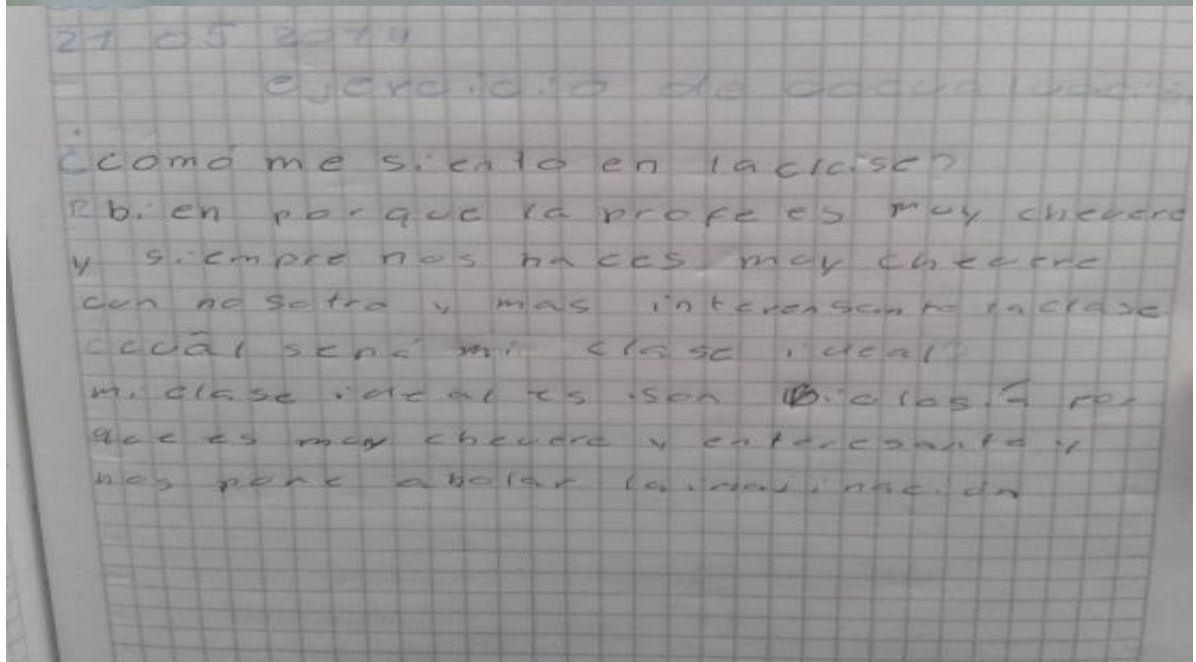 21 05 2014
ejercicio de
¿como me siento en laclase?
R bien por que la profe es muy chevere
y siempre nos haces muy chevere
con nosotro y mas laclase
¿cuál será mi clase ideal?
mi clase ideal es son
que es muy chevere y enteresante y
nos pone avolar